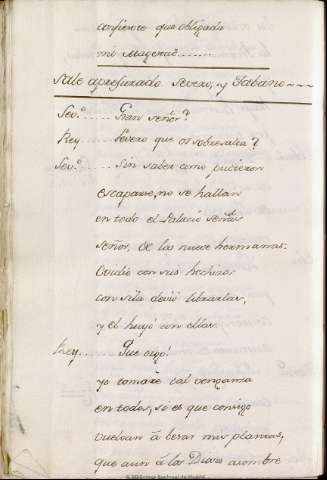 confiente que obligada
mi Magestad......
Sale apresurado Severo, y Fabano
Sev.º...... Gran señor?
Rey...... Severo que os sobresalta?
Sev.º...... Sin saber como pudieron
escaparse, no se hallan
en todo el Palacio señas
señor, de las nueve hermanas:
Ovidio con sus hechizos
con sila devió librarlas,
y el huyó con ellas.
Rey...... Que oigo!
yo tomaré tal venganza
en todos, si es que consigo
vuelvan á besar mis plantas,
que aun á los Dioses asombre